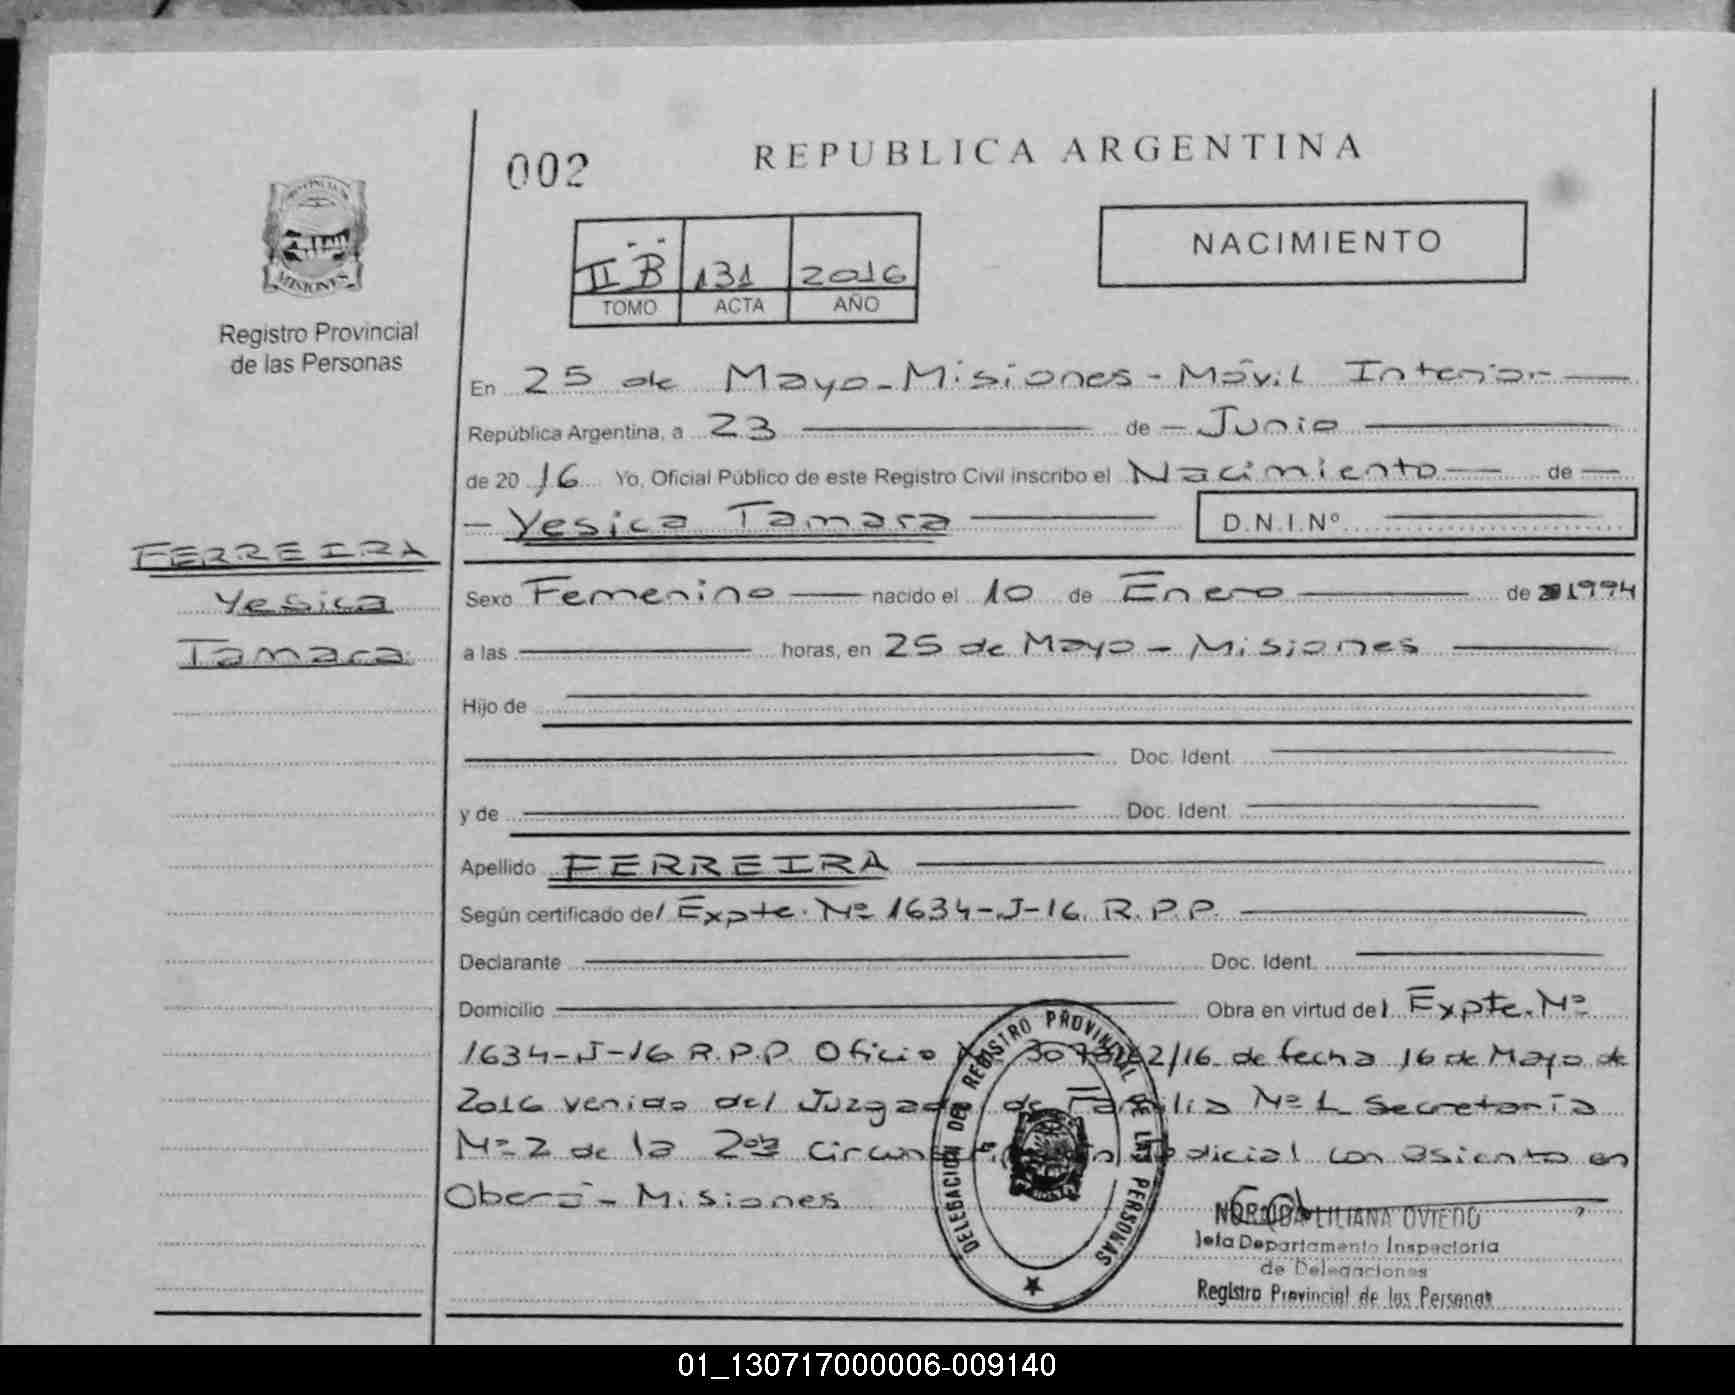 REPUBLICA ARGENTINA
002
NACIMIENTO
II B 131 2016
TOMO ACTA AÑO
PROVINCIA DE
MISIONES
Registro Provincial
de las Personas
En 25 de Mayo - Misiones - Móvil Interior
República Argentina, a 23 de Junio
de 20 16 Yo, Oficial Público de este Registro Civil inscribo el Nacimiento de
Yesica Tamara D.N.I.Nº
FERREIRA
Yesica
Tamara
Sexo Femenino nacido el 10 de Enero de 1994
a las horas, en 25 de Mayo - Misiones
Hijo de
Doc. Ident.
y de Doc. Ident.
Apellido FERREIRA
Según certificado del Expte. Nº 1634-J-16 R.P.P.
Declarante Doc. Ident.
Domicilio Obra en virtud del Expte. Nº
1634-J-16 R.P.P. Oficio /16 de fecha 16 de Mayo de
2016 venido del Juzgado de Familia Nº 1 Secretaría
Nº 2 de la 2da Circunscripción Judicial con asiento en
Oberá - Misiones
DELEGACION DEL REGISTRO PROVINCIAL DE LAS PERSONAS
LILIANA OVIEDO
Jefa Departamento Inspectoria
de Delegaciones
Registro Provincial de las Personas
01_130717000006-009140